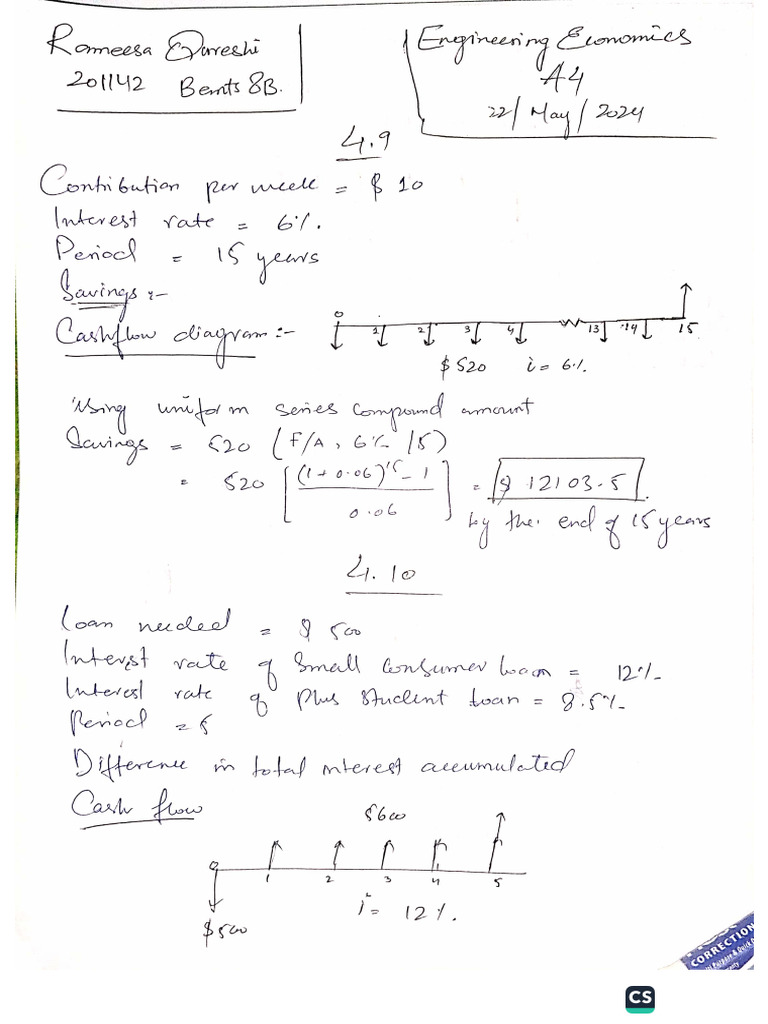 Rameesa Qureshi
201142 Bemts 8B.
Engineering Economics
A4
22/May/2024
4.9
Contribution per week = $ 10
Interest rate = 6%.
Period = 15 years
Savings :-
Cashflow diagram :-
0 1 2 3 4 13 14 15
$520 i = 6%.
Using uniform series compound amount
Savings = 520 (F/A, 6% 15)
= 520 [(1+0.06)^15 - 1 / 0.06] = $ 12103.5
by the end of 15 years
4.10
Loan needed = $ 500
Interest rate of Small Consumer Loan = 12%
Interest rate of Plus Student Loan = 8.5%
Period = 5
Difference in total interest accumulated
Cash flow
0 1 2 3 4 5
$500
i = 12%.
CORRECTION
CS